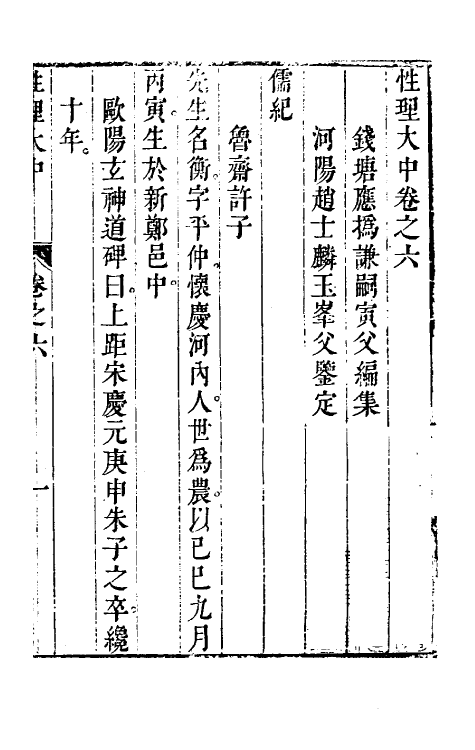 性理大中卷之六
錢塘應撝謙嗣寅父編集
河陽趙士麟玉峯父鑒定
儒紀
魯齋許子
先生名衡字平仲懷慶河內人世爲農以己巳九月
丙寅生於新鄭邑中
歐陽玄神道碑曰上距宋慶元庚申朱子之卒纔
十年
性理大中
卷之六
一